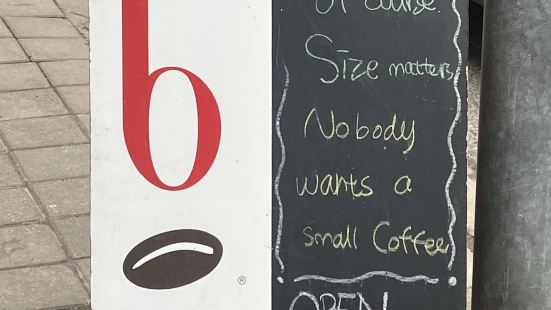 b
®
Of Course
Size matters
Nobody
wants a
small Coffee
OPEN